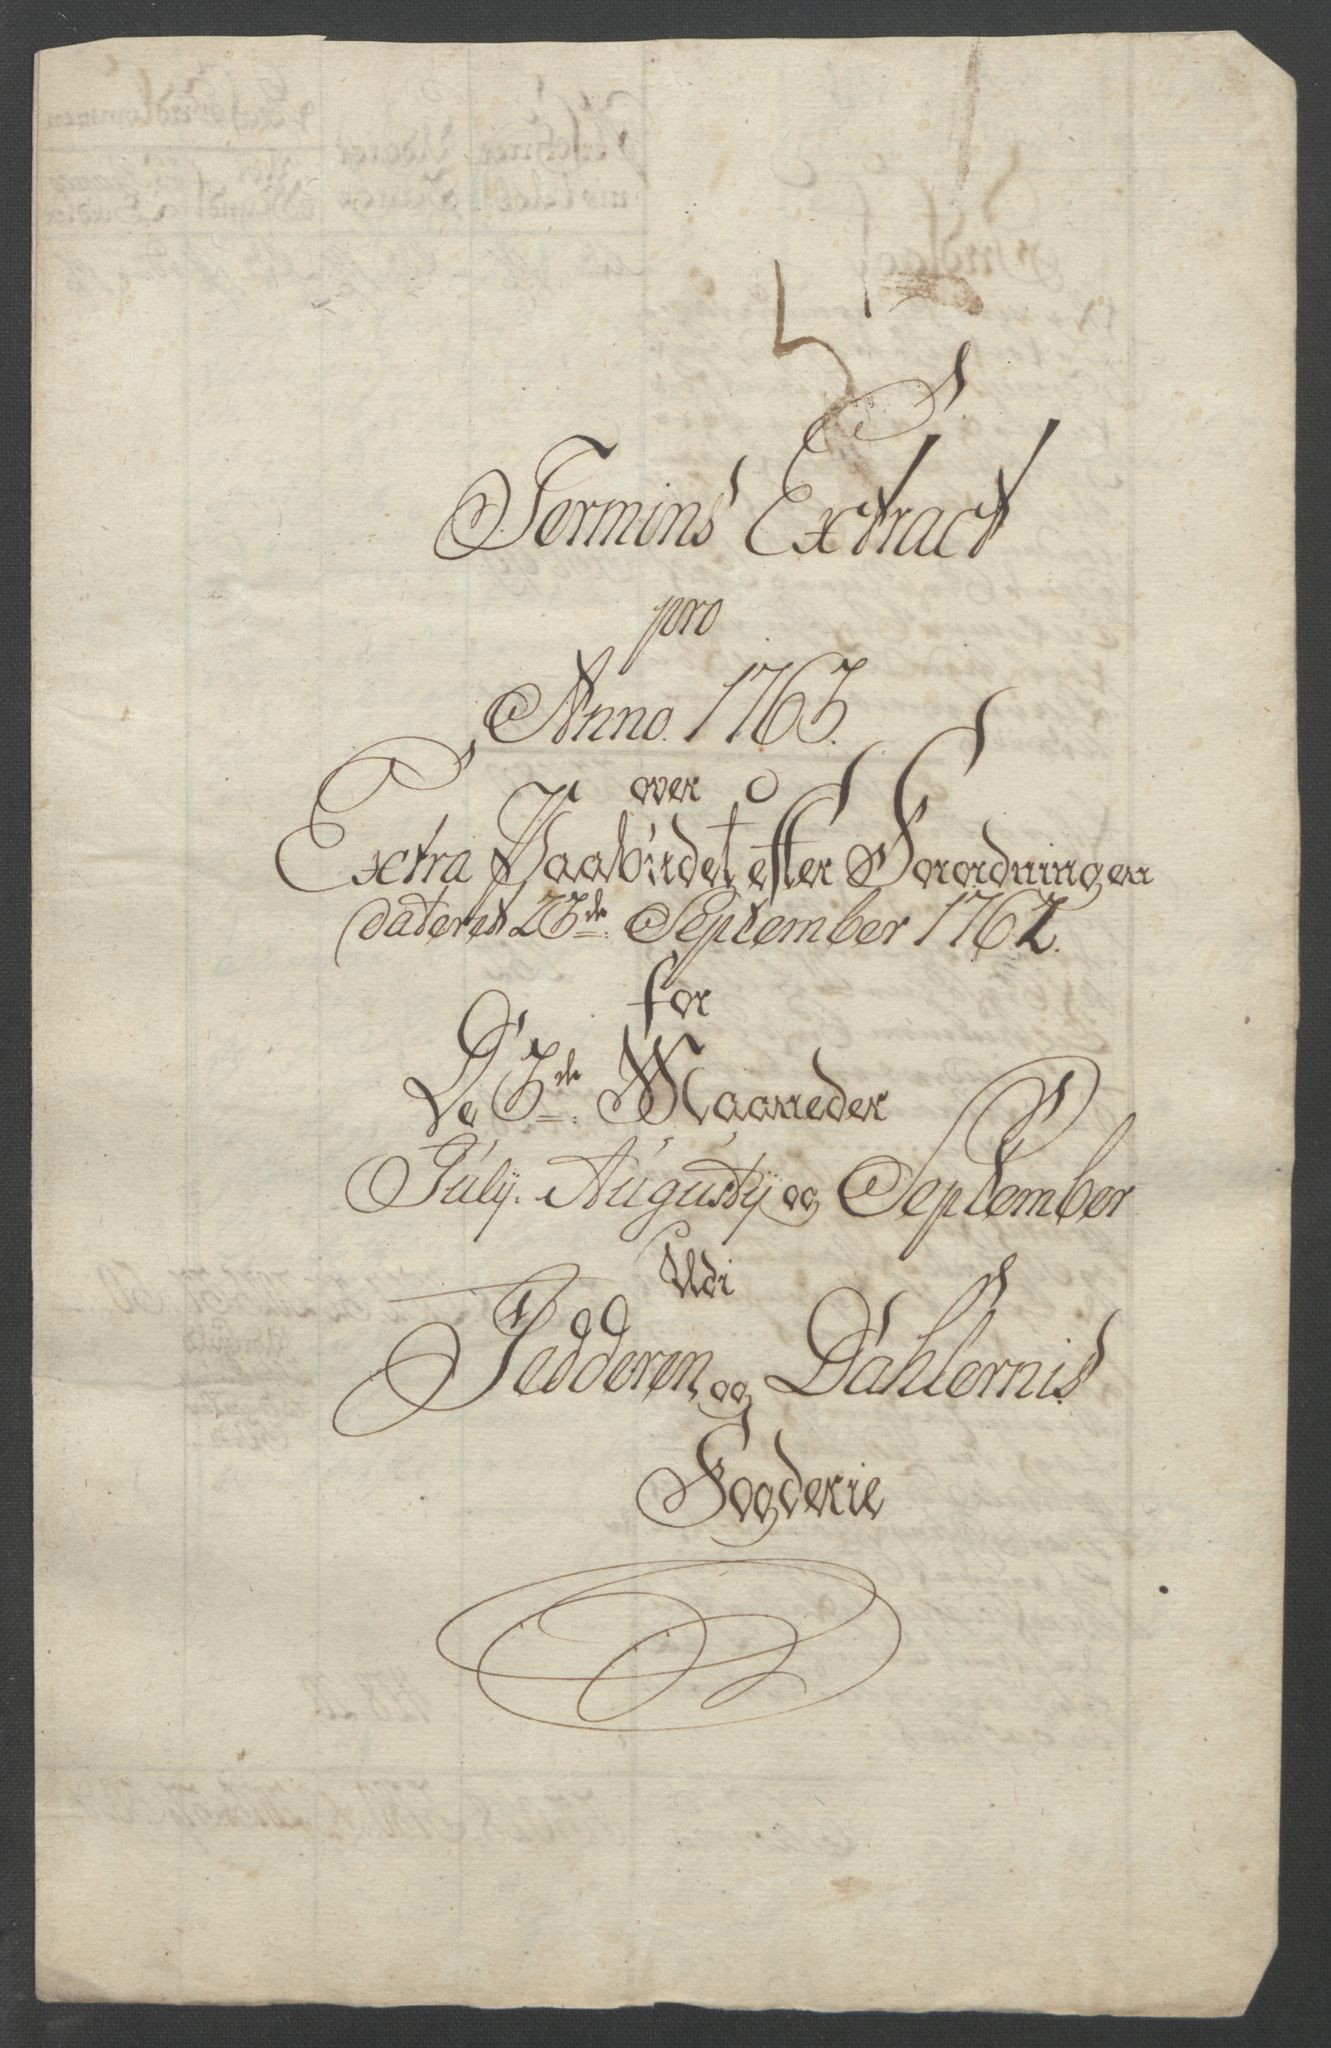 Termins Extract
pro
Anno. 1763.
over
Extra Paabudet efter Forordningen
dateret 23de September 1762.
for
De 3de Maaneder
July. Augusty og September
Udi
Jedderen og Dahlernis
Fogderie